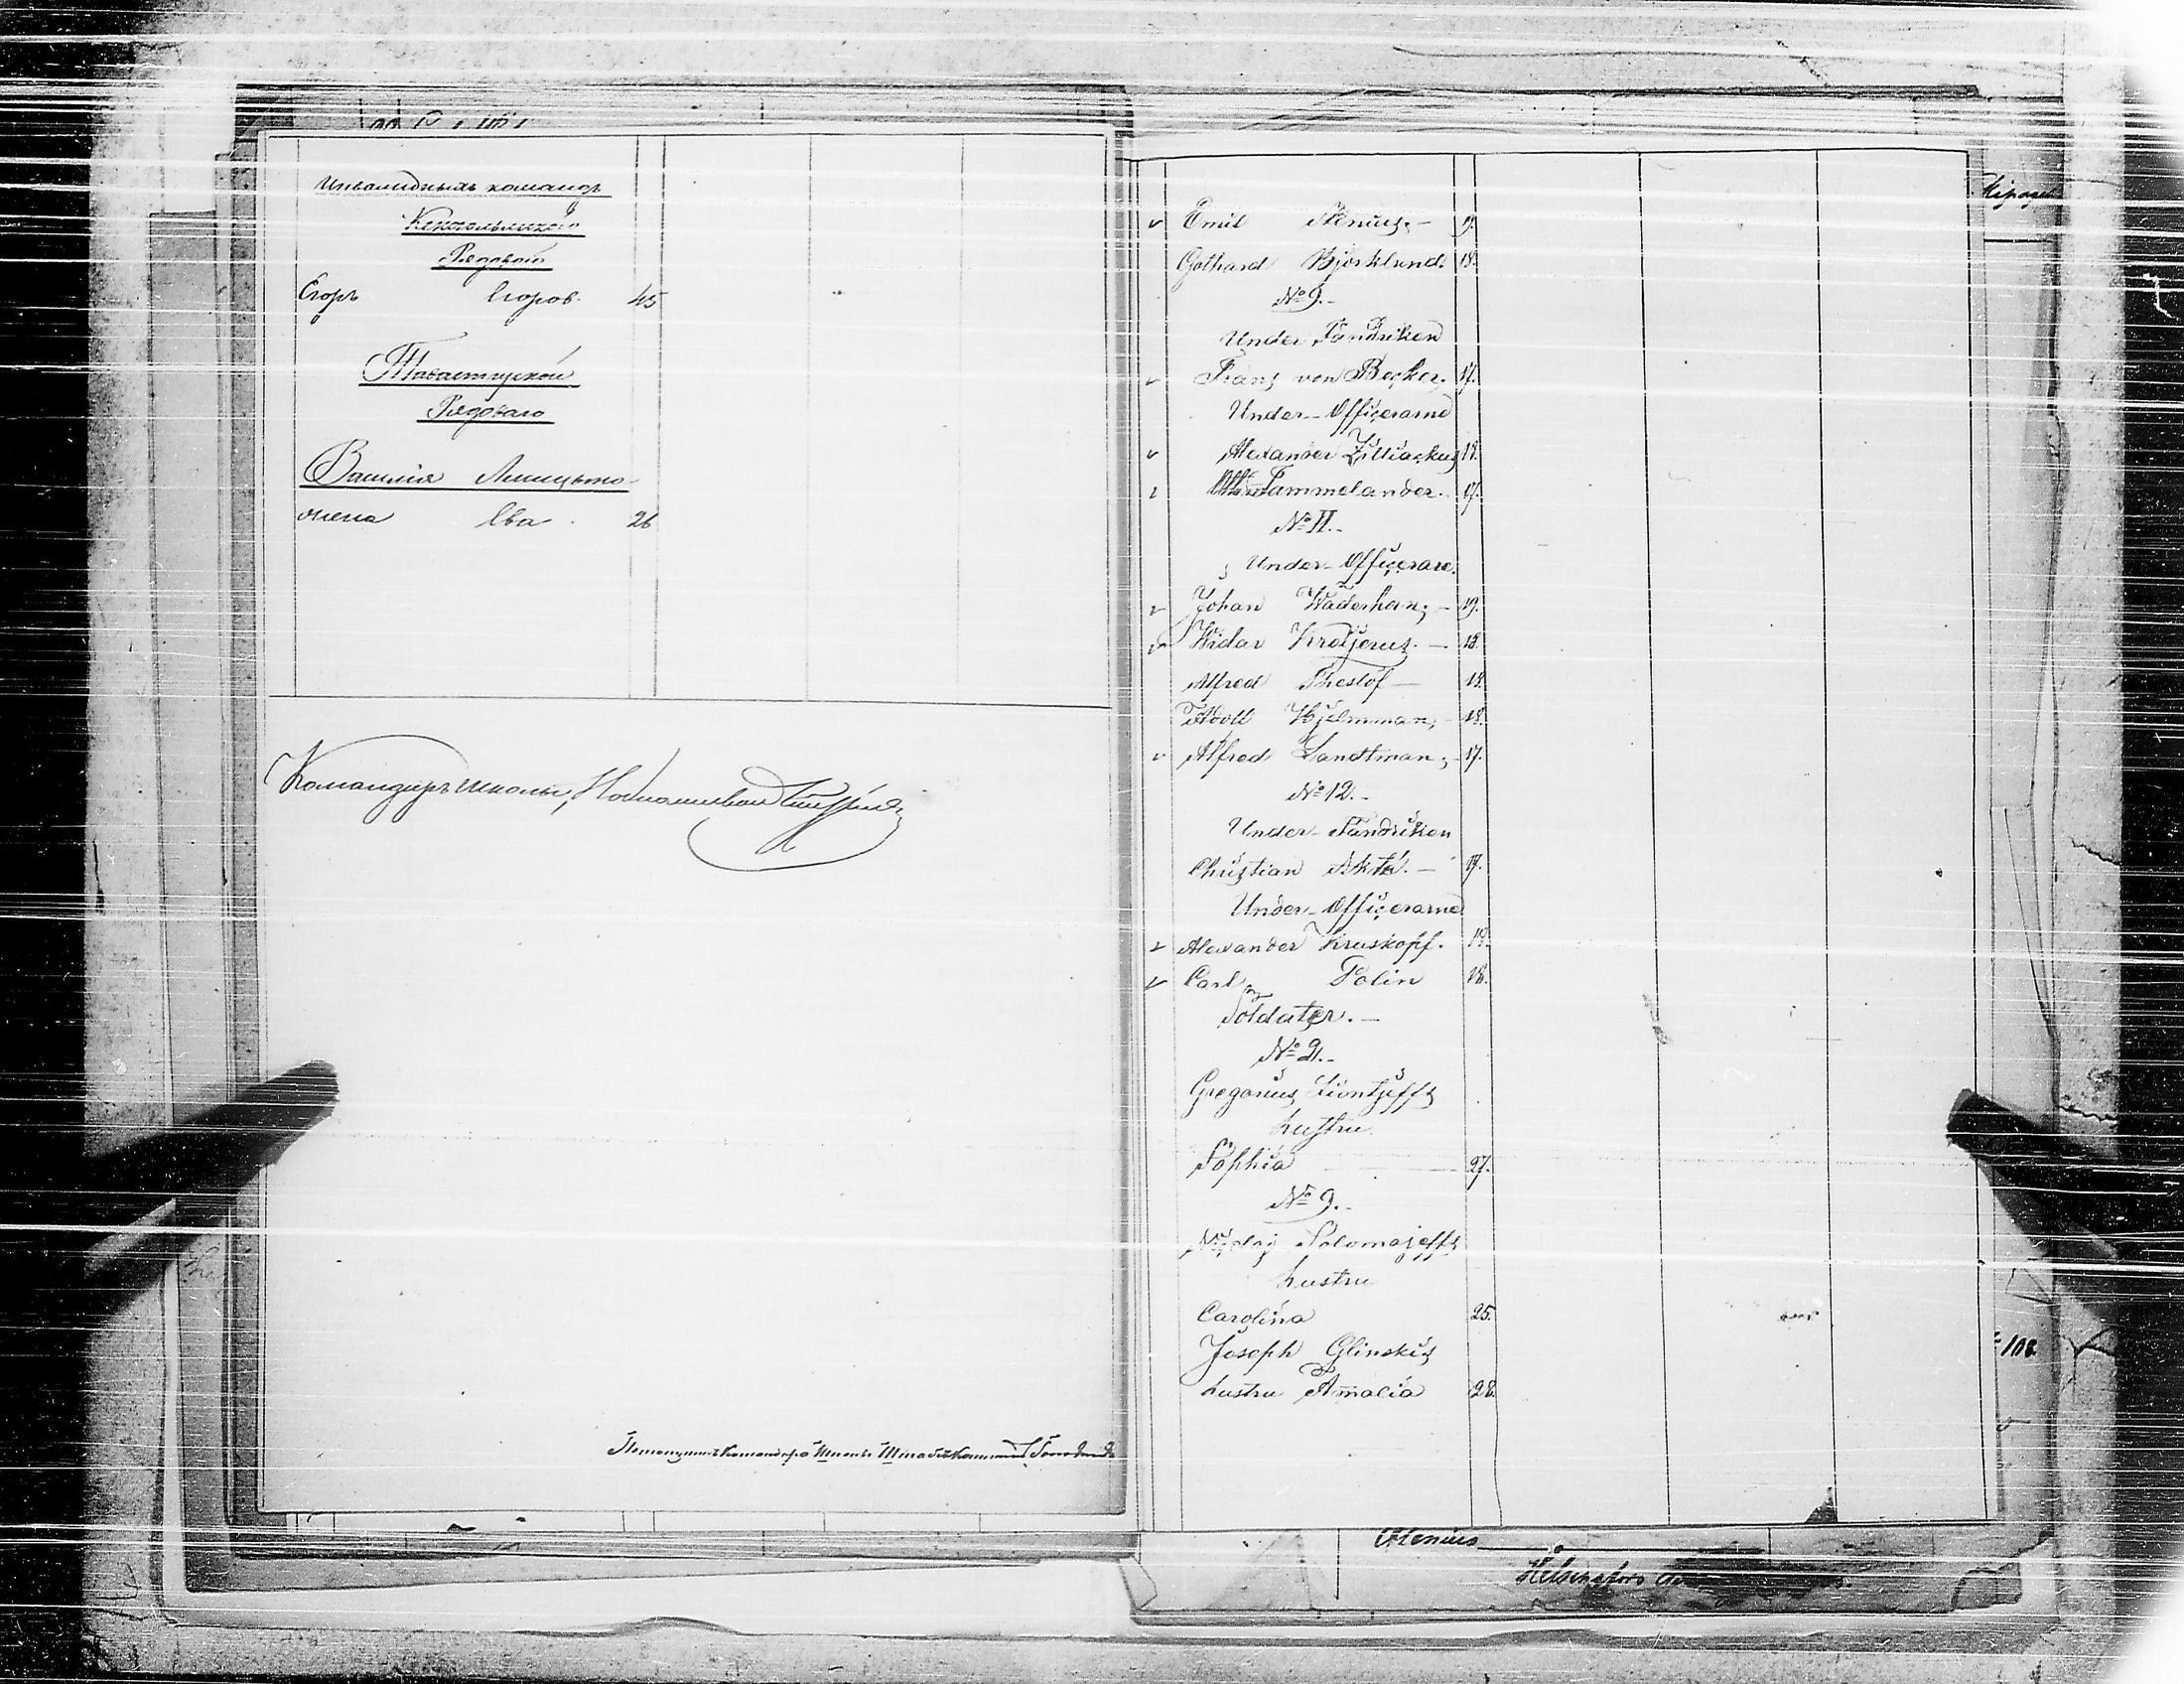 Инвалидныхъ командъ
Кексгольмской
Рядовой
Егоръ Егоров. 45
Тавастгуской
Рядоваго
Василія
жена Ева. 26
Командиръ школы,
Emil Stenius. — 19.
Gothard Björklund. 18.
No 9.-
Under Fändriken
Frans von Becker, 17.
Under-Officerarne
Alexander Zilliackus 18.
Tammelander. 17.
No II.-
Under-Officerare.
Johan Wäderhan, — 19.
Widar Krogerus. — 18.
Alfred Theslöf — 18.
Adolf Hjelmman, - 18.
Alfred Sandtman, - 17.
No 12.-
Under-Fändriken
Christian Akté. — 17.
Under-Officerarne
Alexander Kruskopf. 19.
Carl Polin 18.
Soldater. —
No 2.-
Gregorius
hustru
Sophia 27.
No 9.-
Nicolaj Solomajeffs
hustru
Carolina 25.
Joseph Glinskis
hustru Amalia 28.
Stenius
Helsingfors